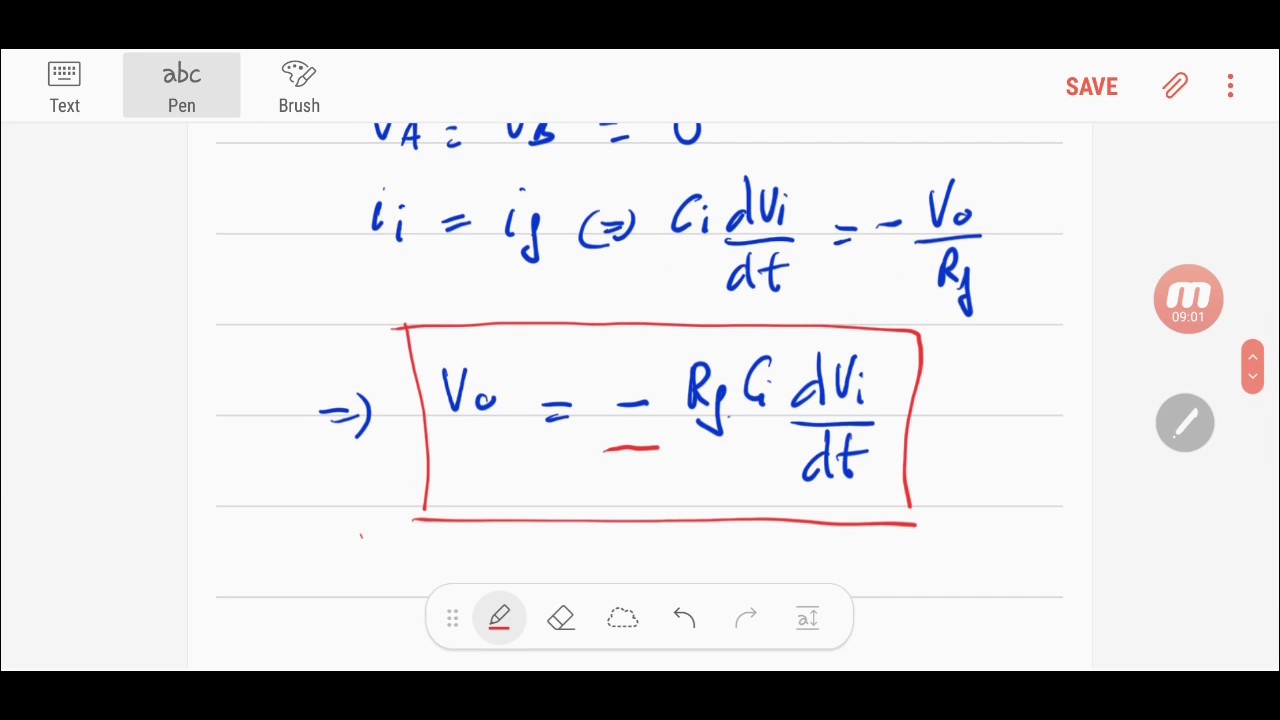 Text abc Pen Brush SAVE
VA = VB = 0
ii = if (=) Ci dVi/dt = - Vo/Rf
09:01
=) Vo = - Rf. Ci dVi/dt
a